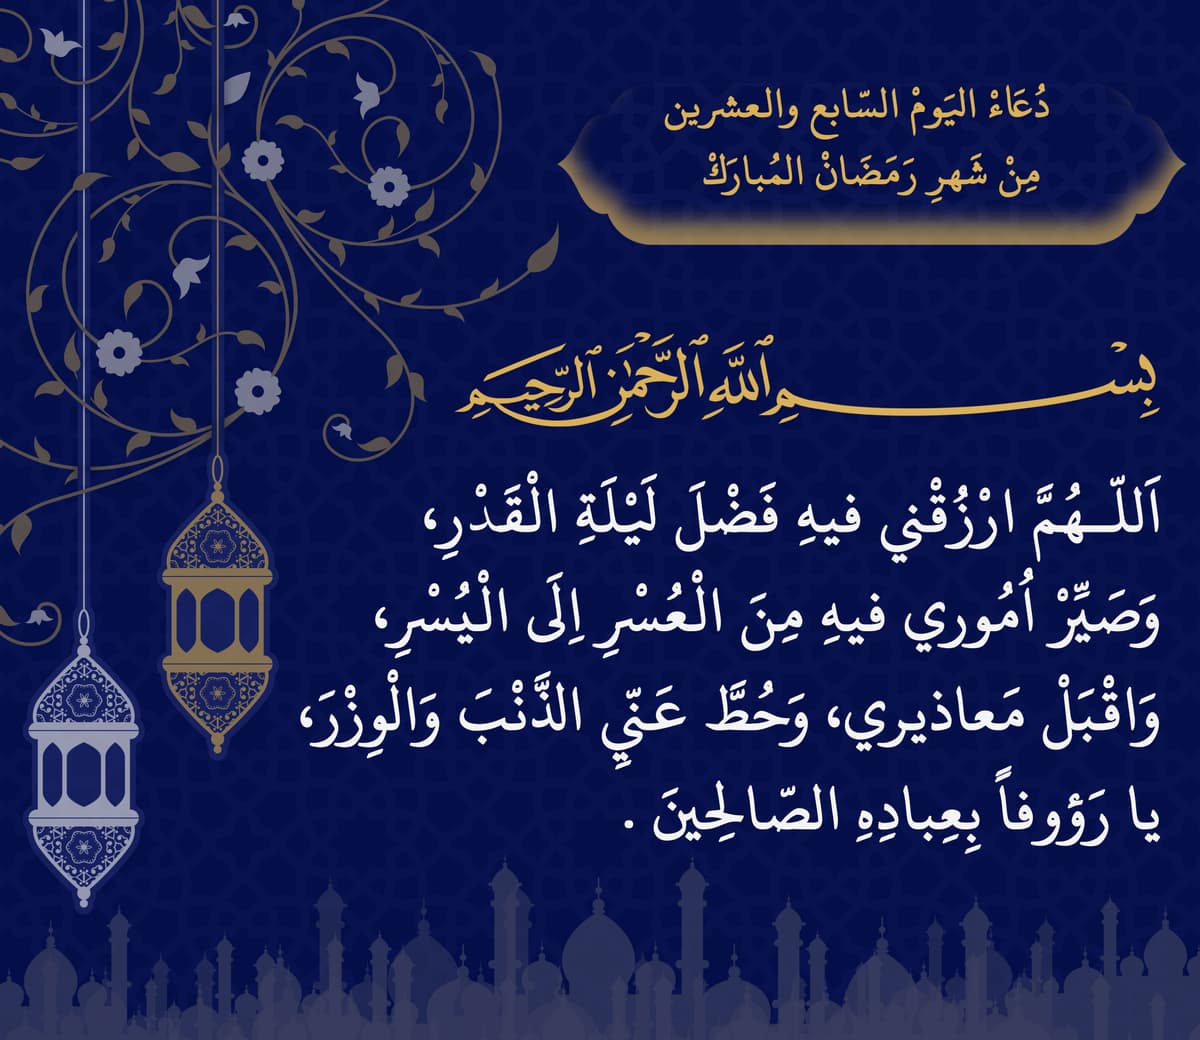 دُعَاءْ اليَومْ السّابع والعشرين
مِنْ شَهرِ رَمَضَانْ المُبارَكْ
بِسْمِ ٱللَّهِ ٱلرَّحْمَٰنِ ٱلرَّحِيمِ
اَللّـهُمَّ ارْزُقْني فيهِ فَضْلَ لَيْلَةِ الْقَدْرِ،
وَصَيِّرْ اُمُوري فيهِ مِنَ الْعُسْرِ اِلَى الْيُسْرِ،
وَاقْبَلْ مَعاذيري، وَحُطَّ عَنِّي الذَّنْبَ وَالْوِزْرَ،
يا رَؤوفاً بِعِبادِهِ الصّالِحينَ .